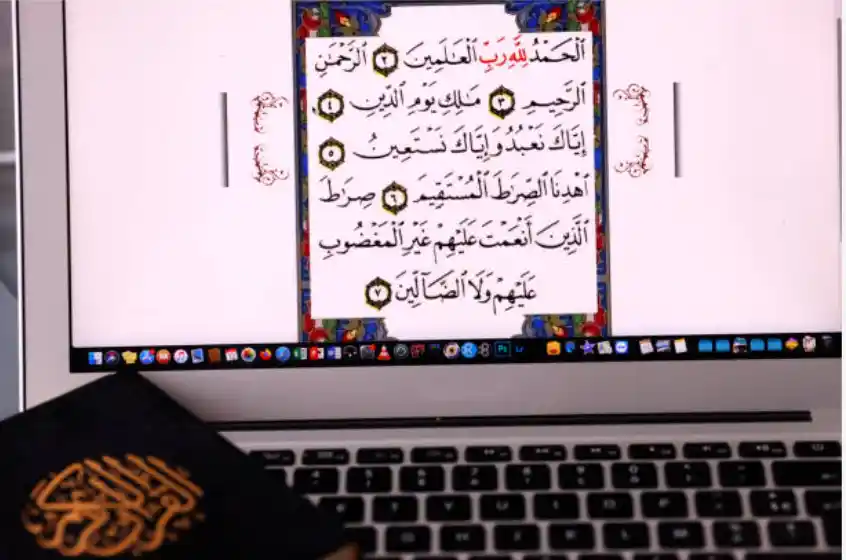 ٱلْحَمْدُ لِلَّهِ رَبِّ ٱلْعَـٰلَمِينَ ٢ ٱلرَّحْمَـٰنِ
ٱلرَّحِيمِ ٣ مَـٰلِكِ يَوْمِ ٱلدِّينِ ٤
إِيَّاكَ نَعْبُدُ وَإِيَّاكَ نَسْتَعِينُ ٥
ٱهْدِنَا ٱلصِّرَٰطَ ٱلْمُسْتَقِيمَ ٦ صِرَٰطَ
ٱلَّذِينَ أَنْعَمْتَ عَلَيْهِمْ غَيْرِ ٱلْمَغْضُوبِ
عَلَيْهِمْ وَلَا ٱلضَّآلِّينَ ٧
القرآن الكريم